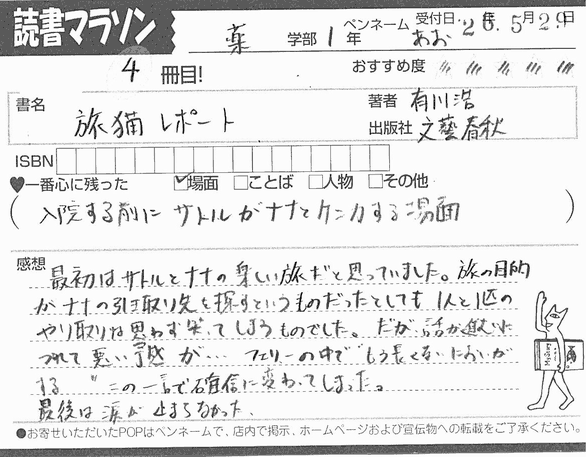 読書マラソン
薬 学部 1 年 ペンネーム あお 受付日・26年5月29日
4 冊目! おすすめ度
書名 旅猫レポート 著者 有川浩
出版社 文藝春秋
ISBN
♥一番心に残った ☑場面 □ことば □人物 □その他
(入院する前にサトルがナナとケンカする場面)
感想
最初はサトルとナナの楽しい旅だと思っていました。旅の目的
がナナの引き取り先を探すというものだったとしても1人と1匹の
やり取りは思わず笑ってしまうものでした。だが、話が進むに
つれて悪い予感が… フェリーの中で"もう長くないにおいが
する"この一言で確信に変わってしまった。
最後は涙が止まらなかった。
●お寄せいただいたPOPはペンネームで、店内で掲示、ホームページおよび宣伝物への転載をご了承ください。